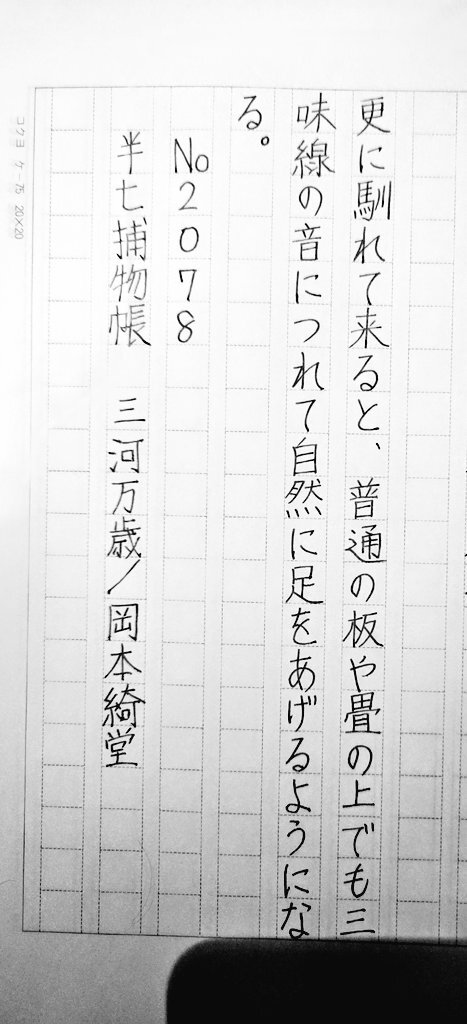 更に馴れて来ると、普通の板や畳の上でも三
味線の音につれて自然に足をあげるようにな
る。
No2078
半七捕物帳　三河万歳/岡本綺堂
コクヨ ケ-75 20×20